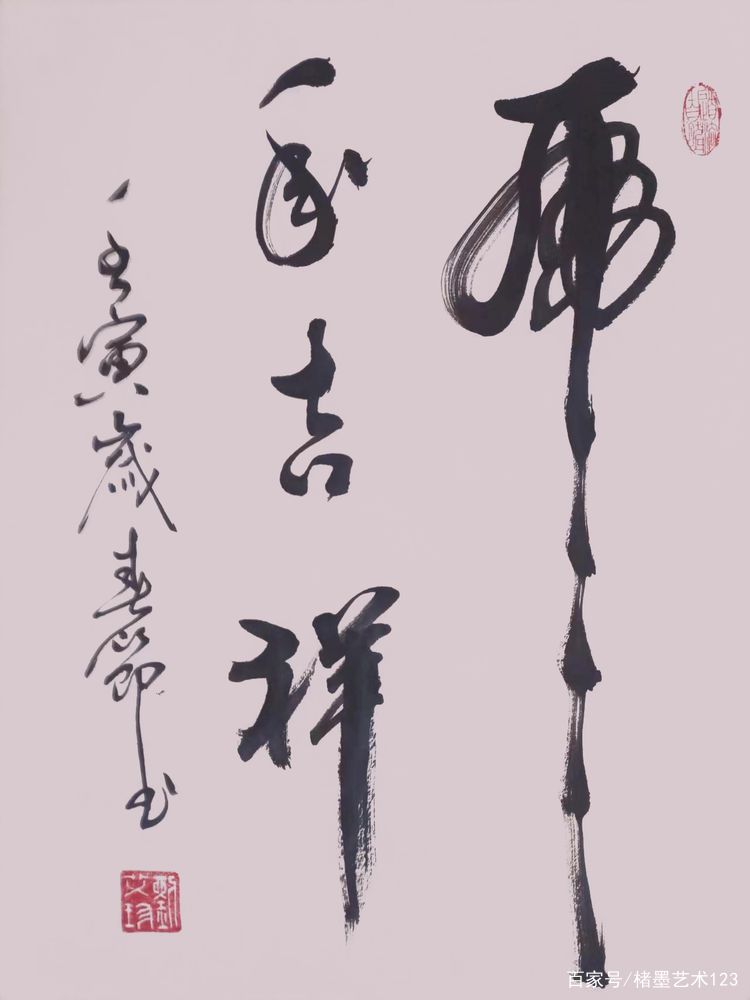 虎
年吉祥
壬寅岁春節书
百家号/楮墨艺术123